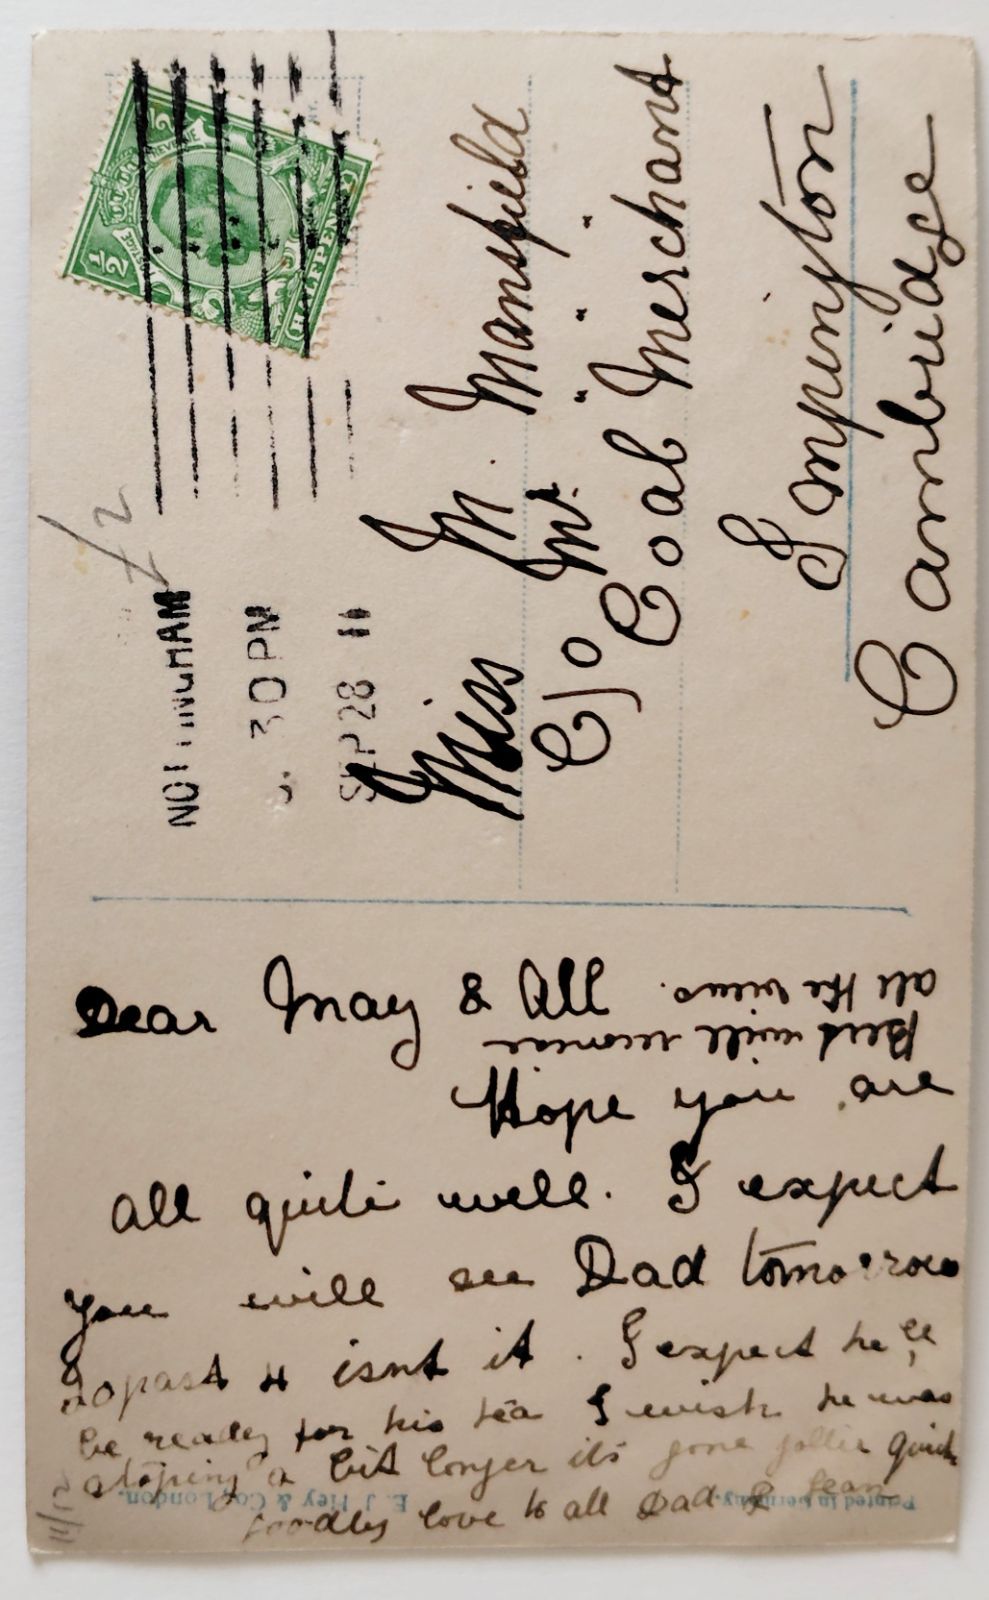 HALFPENNY
POSTAGE
REVENUE
1/2
1/2
NOTTINGHAM
30 PM
SEP 28 11
1/2
Miss M. Mansfield
C/o Mr. " " "
Coal Merchant
Trumpington
Cambridge
Dear May & All
Hope you are
all quite well. I expect
you will see Dad tomorrow
20 past 4 isnt it. I expect he'll
be ready for his tea I wish he was
stoping a bit longer its gone quick
Goodbye love to all Dad &
Bert will recognise
all the views.
E. J. Hey & Co., London.
Printed in Germany.
11/12